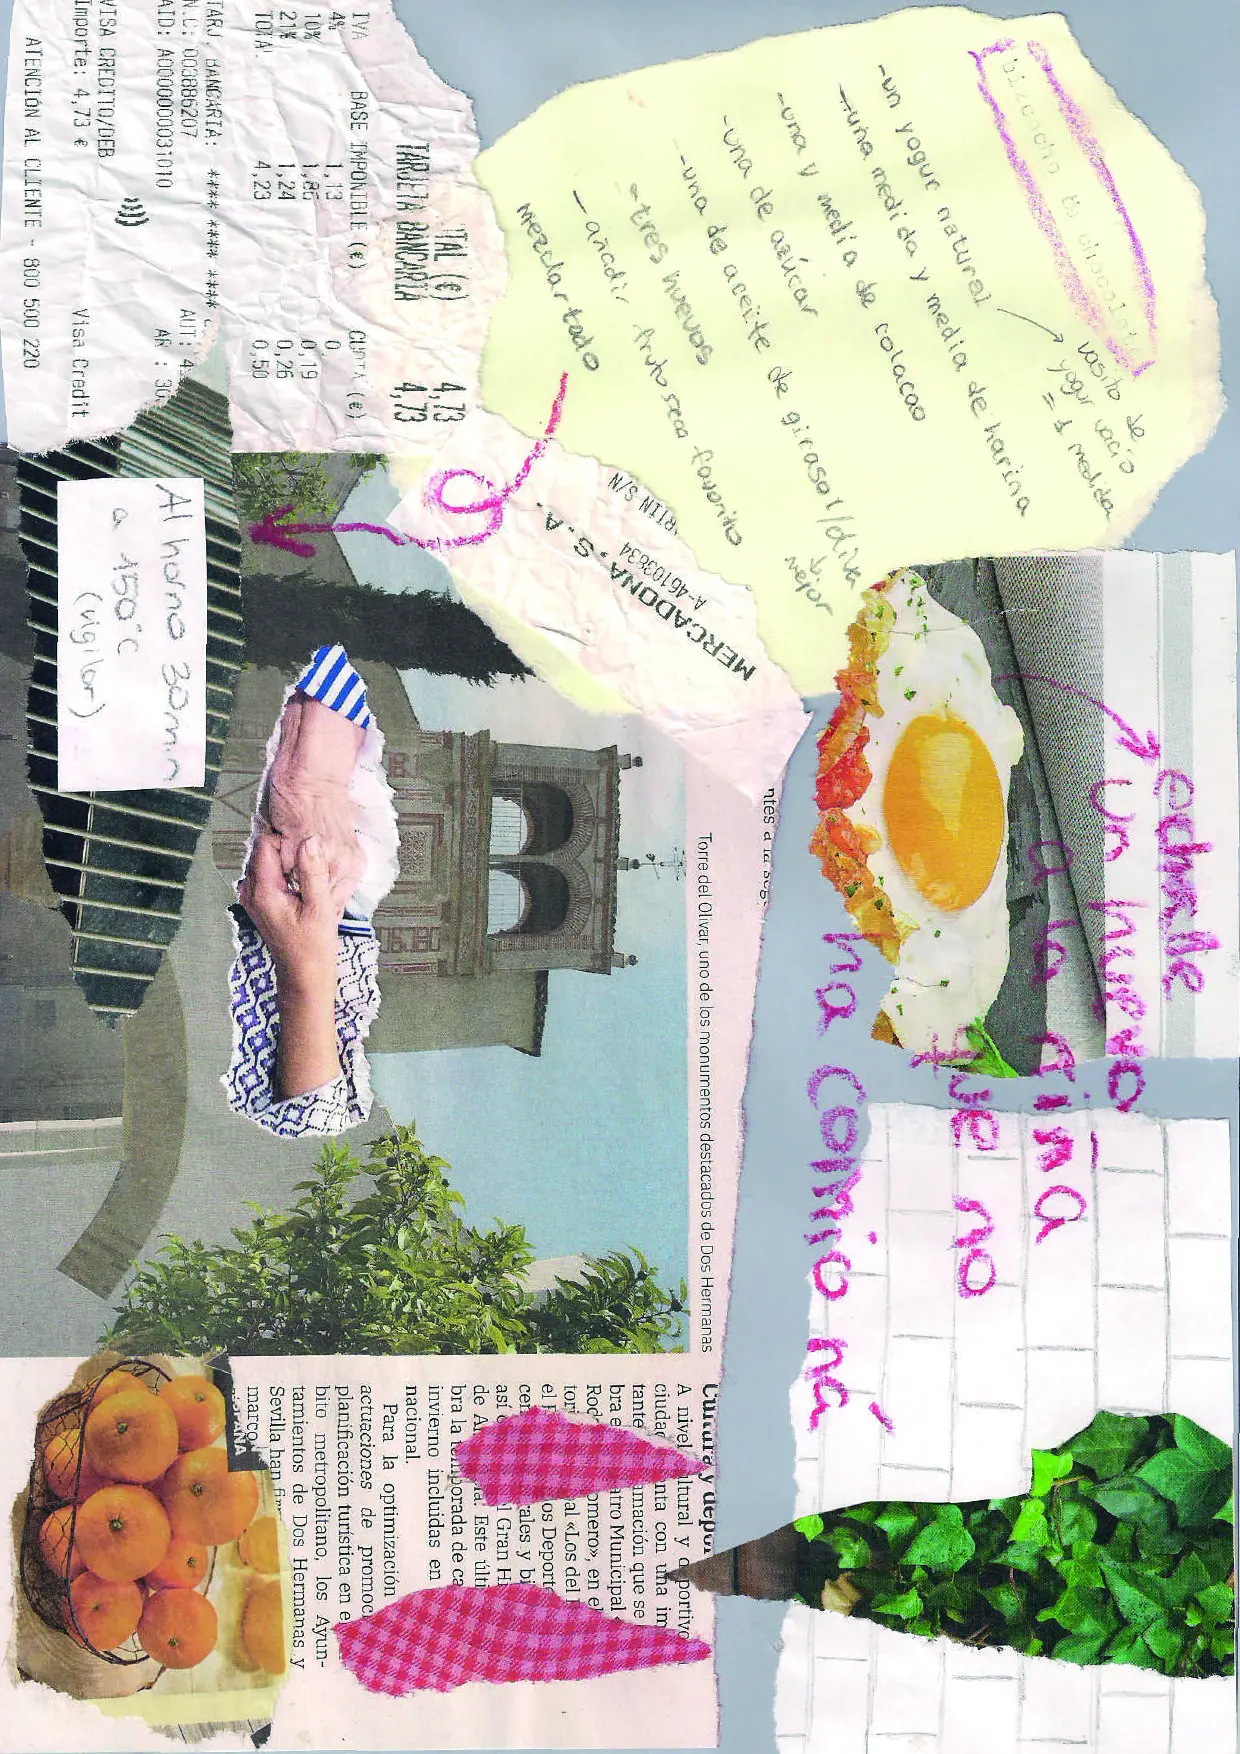 bizcocho de chocolate
-un yogur natural
vasito de
yogur vacío
= 1 medida
-una medida y media de harina
-una y media de colacao
-una de azúcar
-una de aceite de girasol/oliva
mejor
-tres huevos
-añadir fruto seco favorito
Mezclar todo
Al horno 30min
a 150°C
(vigilar)
MERCADONA, S.A.
A-46103834
RTIN S/N
TAL (€) 4,73
TARJETA BANCARIA 4,73
IVA BASE IMPONIBLE (€) CUOTA (€)
4% 1,13 0
10% 1,86 0,19
21% 1,24 0,26
TOTAL 4,23 0,50
TARJ. BANCARIA: **** **** ****
N.C: 003886207 AUT: 4
AID: A0000000031010 AR : 30
VISA CREDITO/DEB Visa Credit
Importe: 4,73 €
ATENCIÓN AL CLIENTE - 800 500 220
echalle
un huevo
a la niña
que no
ha comío ná
Torre del Olivar, uno de los monumentos destacados de Dos Hermanas
Cultura y depor
A nivel ltural y d portivo
ciudad nta con una im
tante amación que se
bra e tro Municipal
Rod omero», en el
tori al «Los del
el os Deporte
cer rales y bi
así l Gran Hi
de A a. Este últi
bra la temporada de ca
invierno incluidas en
nacional.
Para la optimización
actuaciones de promoc
planificación turística en e
bito metropolitano, los Ayun-
tamientos de Dos Hermanas y
Sevilla han fir
marco